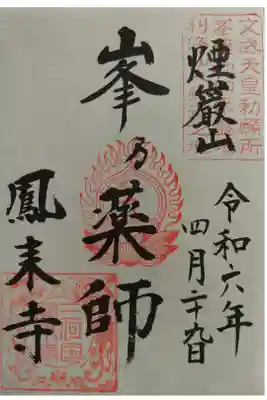 文武天皇勅願所
煙巌山
令和六年
四月二十九日
峯乃薬師
鳳来寺